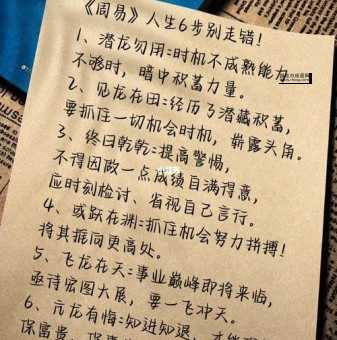 《周易》人生6步别走错!
1、潜龙勿用:时机不成熟能力
不够时，暗中积蓄力量。
2、见龙在田:经历了潜藏积蓄,
要抓住一切机会时机，崭露头角。
3、终日乾乾:提高警惕,
不得因做一点成绩自满得意,
应时刻检讨、省视自己言行。
4、或跃在渊:抓住机会努力拼搏!
将其振向更高处。
5、飞龙在天:事业巅峰即将来临,
亟待宏图大展，要一飞冲天。
6、亢龙有悔:知进知退，才能
保富贵、保